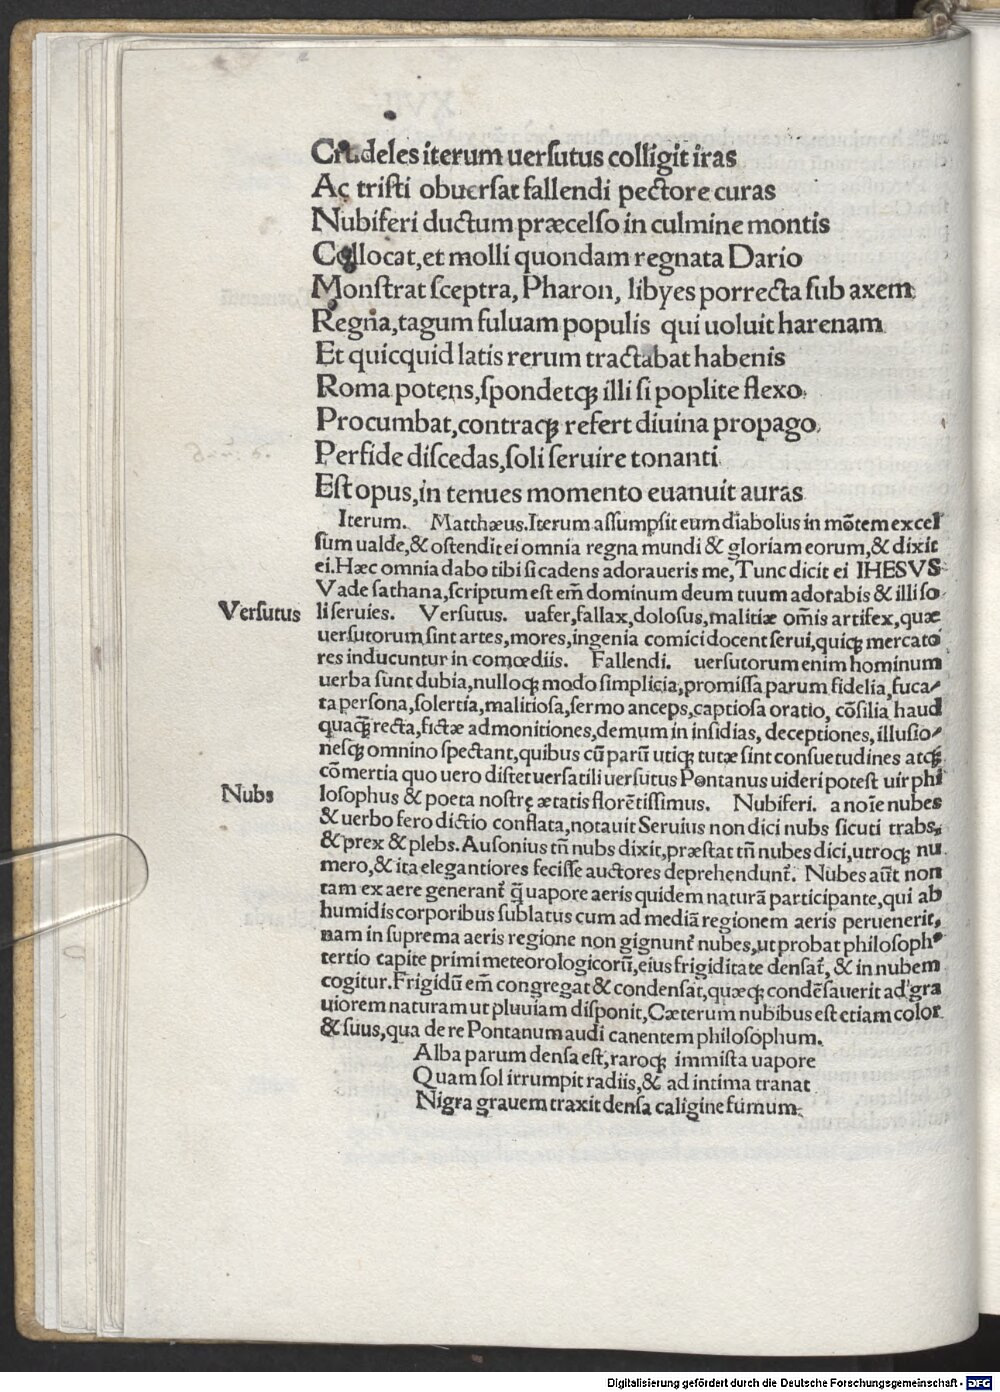 Crudeles iterum uerſutus colligit iras
Ac triſti obuerſat fallendi pectore curas
Nubiferi ductum præcelſo in culmine montis
Collocat, et molli quondam regnata Dario
Monſtrat ſceptra, Pharon, libyes porrecta ſub axem
Regna, tagum fuluam populis qui uoluit harenam
Et quicquid latis rerum tractabat habenis
Roma potens, ſpondetqꝫ illi ſi poplite flexo.
Procumbat, contraqꝫ refert diuina propago.
Perfide diſcedas, ſoli ſeruire tonanti
Eſt opus, in tenues momento euanuit auras
Iterum. Matthæus. Iterum aſſumpſit eum diabolus in mõtem excel
ſum ualde, & oſtendit ei omnia regna mundi & gloriam eorum, & dixit
ei. Hæc omnia dabo tibi ſi cadens adoraueris me, Tunc dicit ei IHESVS
Vade ſathana, ſcriptum eſt em̃ dominum deum tuum adorabis & illi ſo
Verſutus
li ſeruies. Verſutus. uafer, fallax, doloſus, malitiæ om̃is artifex, quæ
uerſutorum ſint artes, mores, ingenia comici docent ſerui, quiqꝫ mercato
res inducuntur in comœdiis. Fallendi. uerſutorum enim hominum
uerba ſunt dubia, nulloqꝫ modo ſimplicia, promiſſa parum fidelia, fuca⸗
ta perſona, ſolertia, malitioſa, ſermo anceps, captioſa oratio, cõſilia haud
quaq̃ꝫ recta, fictæ admonitiones, demum in inſidias, deceptiones, illuſio⸗
neſqꝫ omnino ſpectant, quibus cũ parũ utiqꝫ tutæ ſint conſuetudines atqꝫ
cõmertia quo uero diſtet uerſatili uerſutus Pontanus uideri poteſt uir phi
Nubs
loſophus & poeta noſtrę ætatis florẽtiſſimus. Nubiferi. a noı̃e nubes
& uerbo fero dictio conflata, notauit Seruius non dici nubs ſicuti trabs,
& prex & plebs. Auſonius tñ nubs dixit, præſtat tñ nubes dici, utroqꝫ nu
mero, & ita elegantiores feciſſe auctores deprehendunt̃. Nubes aũt non
tam ex aere generant̃ q̃ uapore aeris quidem naturã participante, qui ab
humidis corporibus ſublatus cum ad mediã regionem aeris peruenerit,
nam in ſuprema aeris regione non gignunt̃ nubes, ut probat philoſophꝰ
tertio capite primi meteorologicorũ, eius frigiditate denſat̃, & in nubem
cogitur. Frigidũ em̃ congregat & condenſat, quæqꝫ condẽſauerit ad gra
uiorem naturam ut pluuiam diſponit, Cæterum nubibus eſt etiam color
& ſuus, qua de re Pontanum audi canentem philoſophum.
Alba parum denſa eſt, raroqꝫ immiſta uapore
Quam ſol irrumpit radiis, & ad intima tranat
Nigra grauem traxit denſa caligine fumum
Digitalisierung gefördert durch die Deutsche Forschungsgemeinschaft - DFG